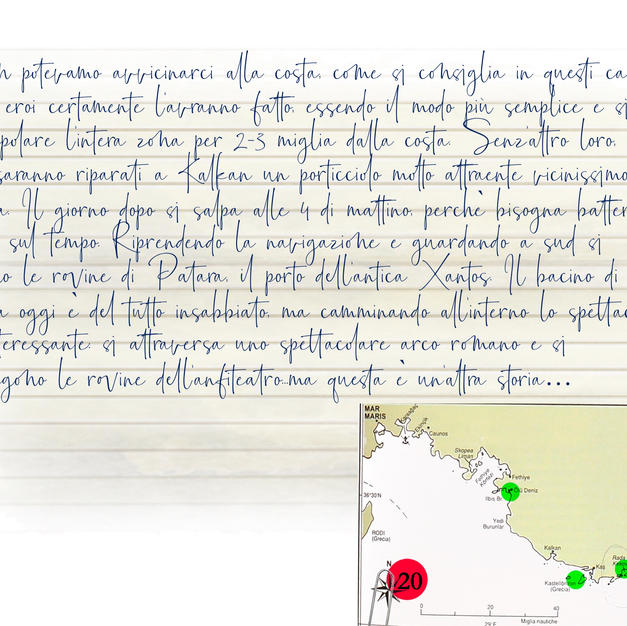 potevamo avvicinarci alla costa, come si consiglia in questi ca
eroi certamente l'avranno fatto, essendo il modo più semplice e si
polare l'intera zona per 2-3 miglia dalla costa. Senz'altro loro,
saranno riparati a Kalkan un porticciolo molto attraente vicinissimo
a. Il giorno dopo si salpa alle 4 di mattino, perchè bisogna batter
sul tempo. Riprendendo la navigazione e guardando a sud si
o le rovine di Patara, il porto dell'antica Xantos. Il bacino di
a oggi è del tutto insabbiato, ma camminando all'interno lo spettac
teressante: si attraversa uno spettacolare arco romano e si
gono le rovine dell'anfiteatro...ma questa è un'altra storia...
MAR
MARIS
Karaağaç
Ekinçik
Caunos
Skopea
Liman
Fethiye
Körfezi
Fethiye
Ölü Deniz
Ilbis Br
36°30'N
Yedi
Burunlar
RODI
(Grecia)
Kalkan
Kaş
Kastellórizon
(Grecia)
N
20
0 20 40
Miglia nautiche
29°E